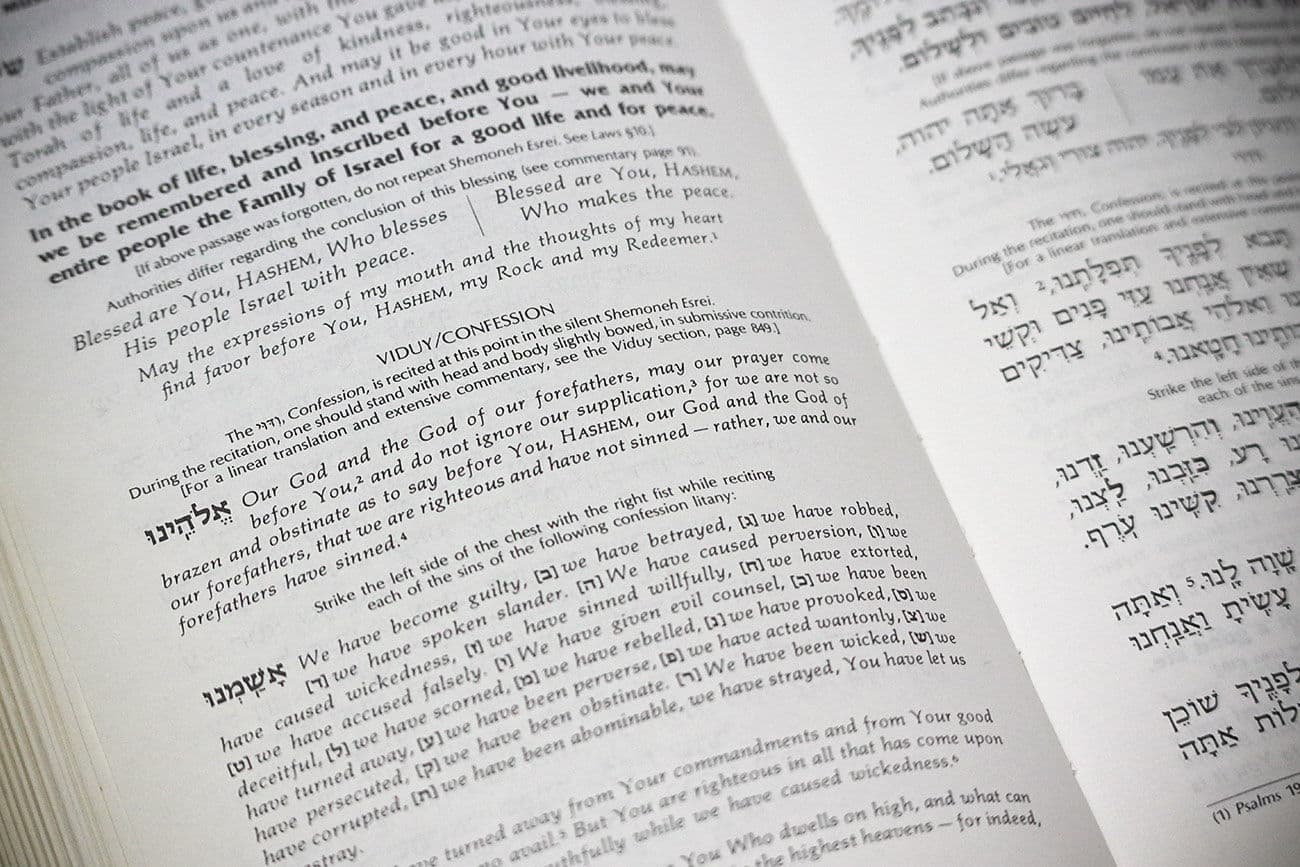 Establish peace,
compassion upon us and
our Father, all of us as one, with
with the light of Your countenance You gave
Torah of life and a love of kindness, righteousness,
compassion, life, and peace. And may it be good in Your eyes to bless
Your people Israel, in every season and in every hour with Your peace.
In the book of life, blessing, and peace, and good livelihood, may
we be remembered and inscribed before You — we and Your
entire people the Family of Israel for a good life and for peace.
[If above passage was forgotten, do not repeat Shemoneh Esrei. See Laws §10.]
Authorities differ regarding the conclusion of this blessing (see commentary page 91).
Blessed are You, HASHEM, Who blesses
His people Israel with peace.
Blessed are You, HASHEM,
Who makes the peace.
May the expressions of my mouth and the thoughts of my heart
find favor before You, HASHEM, my Rock and my Redeemer.¹
VIDUY/CONFESSION
The וידוי, Confession, is recited at this point in the silent Shemoneh Esrei.
During the recitation, one should stand with head and body slightly bowed, in submissive contrition.
[For a linear translation and extensive commentary, see the Viduy section, page 849.]
אֱלֹהֵינוּ Our God and the God of our forefathers, may our prayer come
before You,² and do not ignore our supplication,³ for we are not so
brazen and obstinate as to say before You, HASHEM, our God and the God of
our forefathers, that we are righteous and have not sinned — rather, we and our
forefathers have sinned.⁴
Strike the left side of the chest with the right fist while reciting
each of the sins of the following confession litany:
אָשַׁמְנוּ We have become guilty, [ב] we have betrayed, [ג] we have robbed,
[ד] we have spoken slander. [ה] We have caused perversion, [ו] we
have caused wickedness, [ז] we have sinned willfully, [ח] we have extorted,
[ט] we have accused falsely. [י] We have given evil counsel, [כ] we have been
deceitful, [ל] we have scorned, [מ] we have rebelled, [נ] we have provoked, [ס] we
have turned away, [ע] we have been perverse, [פ] we have acted wantonly, [צ] we
have persecuted, [ק] we have been obstinate. [ר] We have been wicked, [ש] we
have corrupted, [ת] we have been abominable, we have strayed, You have let us
stray.
turned away from Your commandments and from Your good
avail.⁵ But You are righteous in all that has come upon
faithfully while we have caused wickedness.⁶
You Who dwells on high, and what can
the highest heavens — for indeed,
לְפָנֶיךָ,
טוֹבִים וּלְשָׁלוֹם.
[If above passage was forgotten,
Authorities differ regarding the conclusion of
בָּרוּךְ אַתָּה יהוה,
עוֹשֵׂה הַשָּׁלוֹם.
אֶת עַמּוֹ
לְפָנֶיךָ, יהוה צוּרִי וְגֹאֲלִי.¹
The וידוי, Confession, is recited at this
During the recitation, one should stand with head and
[For a linear translation and extensive
תָּבֹא לְפָנֶיךָ תְּפִלָּתֵנוּ,² וְאַל
שֶׁאֵין אֲנַחְנוּ עַזֵּי פָנִים וּקְשֵׁי
וֵאלֹהֵי אֲבוֹתֵינוּ, צַדִּיקִים
חָטָאנוּ.⁴
Strike the left side of
each of the sins
הֶעֱוִינוּ, וְהִרְשַׁעְנוּ, זַדְנוּ,
רָע, כִּזַּבְנוּ, לַצְנוּ,
צָרַרְנוּ, קִשִּׁינוּ עֹרֶף.
שָׁוָה לָנוּ.⁵ וְאַתָּה
עָשִׂיתָ וַאֲנַחְנוּ
לְפָנֶיךָ שׁוֹכֵן
אַתָּה
(1) Psalms 19